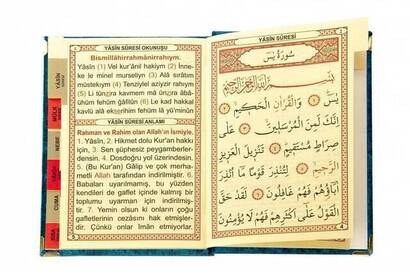 YÂSİN SÛRESİ OKUNUŞU
Bismillâhirrahmânirrahıym.
Yâsîn (1) Vel kur'ânil hakiym (2) İnne-
ke le minel murseliyn (3) Alâ sırâtım
müstekıym (4) Tenziylel aziyzir rahıym
(5) Li tünzira kavmem mâ ünzira âbâ-
ühüm fehüm ğâfilûn (6) Le kad hakkal
kavlü alâ ekserihim fehüm lâ yü'minûn
YÂSİN SÛRESİ ANLAMI
Rahman ve Rahim olan Allah'ın İsmiyle.
1. Yâsîn, 2. Hikmet dolu Kur'an hakkı
için, 3. Sen şüphesiz peygamberler-
densin. 4. Dosdoğru yol üzerindesin.
5. (Bu Kur'an) Gâlip ve çok merha-
metli Allah tarafından indirilmiştir.
6. Babaları uyarılmamış, bu yüzden
kendileri de gaflet içinde kalmış bir
toplumu uyarman için indirilmiştir.
7. Yemin olsun ki onların çoğu
gafletlerinin cezasını hak etmişler-
dir. Çünkü onlar İman etmiyorlar.
YÂSİN
MÜLK
NEBE
CUMA
YÂSİN SÛRESİ
سُورَةُ يٰسٓ
بِسْمِ اللّٰهِ الرَّحْمٰنِ الرَّحِيمِ
يٰسٓ ﴿١﴾ وَالْقُرْاٰنِ الْحَكِيمِ ﴿٢﴾
اِنَّكَ لَمِنَ الْمُرْسَلِينَ ﴿٣﴾ عَلٰى
صِرَاطٍ مُسْتَقِيمٍ ﴿٤﴾ تَنْزِيلَ الْعَزِيزِ
الرَّحِيمِ ﴿٥﴾ لِتُنْذِرَ قَوْمًا مَٓا اُنْذِرَ
اٰبَٓاؤُ۬هُمْ فَهُمْ غَافِلُونَ ﴿٦﴾ لَقَدْ حَقَّ
الْقَوْلُ عَلٰٓى اَكْثَرِهِمْ فَهُمْ لَا يُؤْمِنُونَ
4